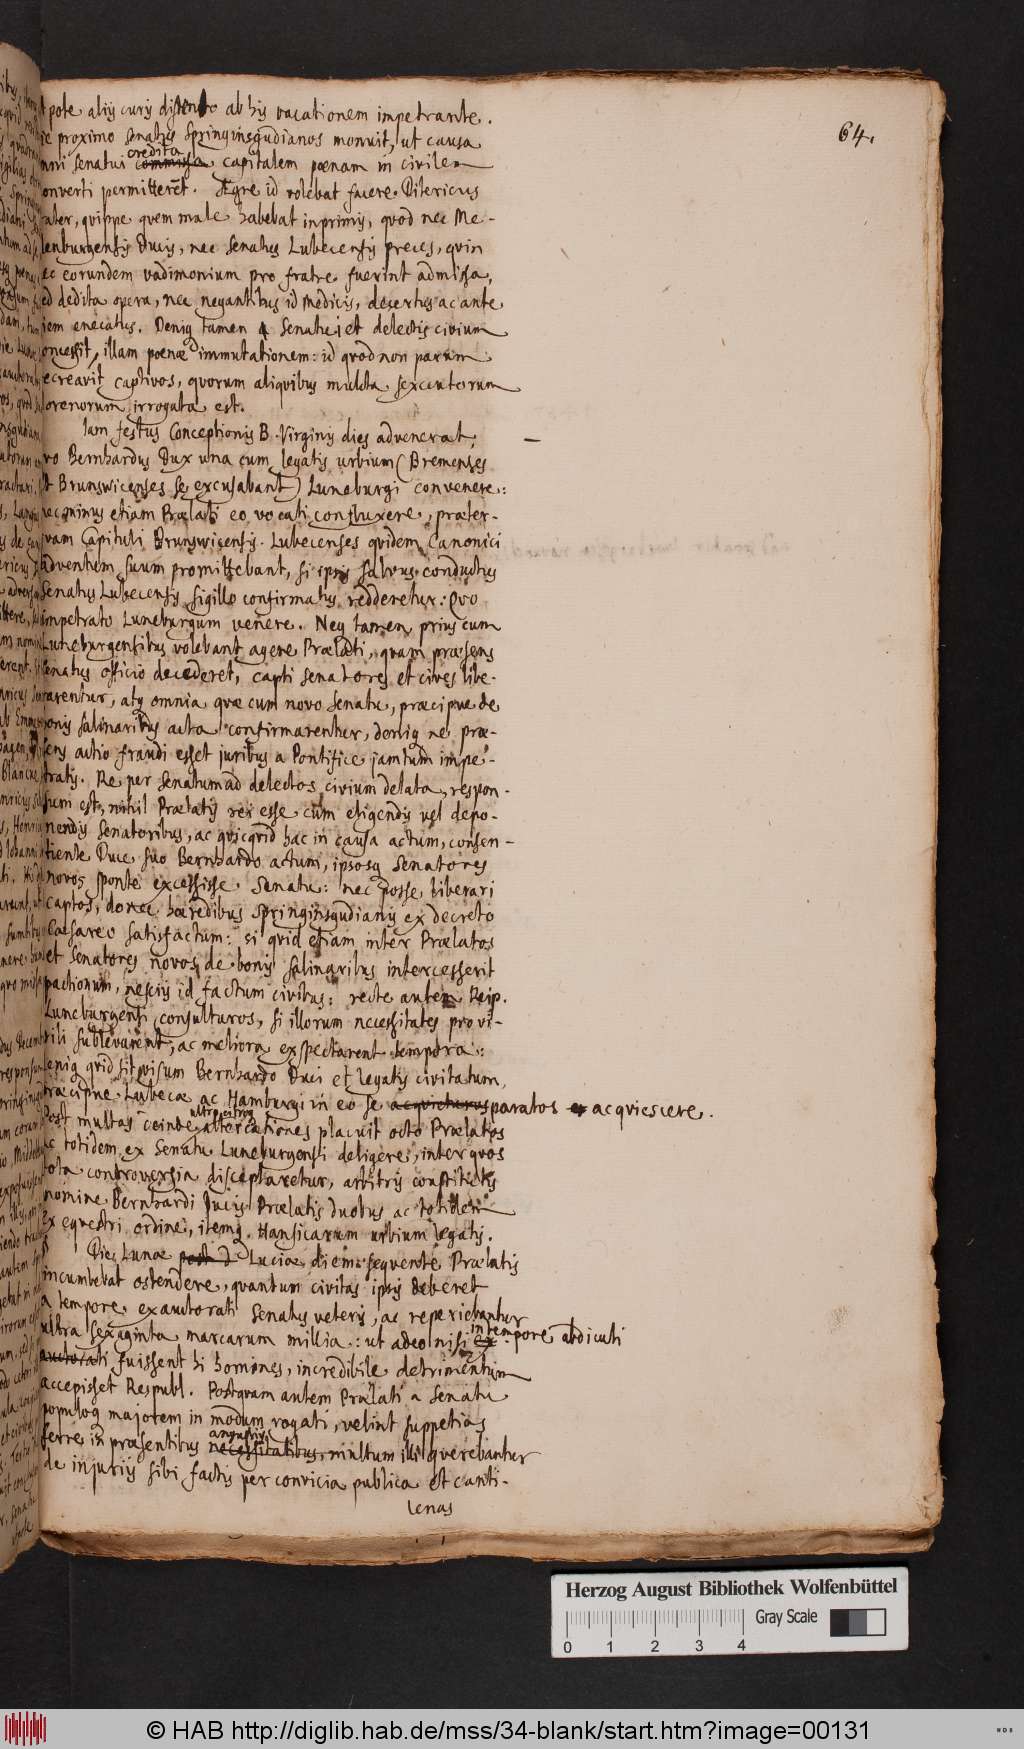 64.
pote aliis curis distento ab his vacationem impetrante.
proximo senatus Springinsgudianos monuit, ut causa
senatui credita commissa capitalem poenam in civilem
onverti permitteret. Aegre id volebat facere Ditericus
ater, quippe quem male habebat inprimis, quod nec Me-
lenburgensis Ducis, nec Senatus Lubecensis preces, quin
ec eorundem vadimonium pro fratre fuerint admissa,
ed dedita opera, nec negantibus id medicis, desertus ac ante
iem enecatus. Deniq tamen Senatui et delectis civium
oncessit, illam poenae immutationem: id quod non parum
ecreavit captivos, quorum aliquibus mulcta sexcentorum
orenorum irrogata est.
Iam festus Conceptionis B. Virginis dies advenerat,
vo Bernhardus Dux una cum legatis urbium (Bremenses
t Brunswicenses se excusabant) Luneburgi convenere:
ec minus etiam Praelati eo vocati confluxere, praeter-
vam Capituli Brunswicensis. Lubecenses quidem Canonici
adventum suum promittebant, si ipsis salvus conductus
Senatus Lubecensis sigillo confirmatus redderetur: Quo
impetrato Luneburgum venere. Neq tamen prius cum
Luneburgensibus volebant agere Praelati, quam praesens
senatus officio decederet, capti senatores et cives libe-
rarentur, atq omnia quae cum novo Senatu, praecipue de
bonis salinaribus acta confirmarentur, deniq ne prae-
sens actio fraudi esset juribus a Pontifice jamtum impe-
tratis. Re per Senatum ad delectos civium delata, respon-
sum est, nihil Praelatis rei esse cum eligendis vel depo-
nendis Senatoribus, ac quicquid hac in causa actum, consen-
tiente Duce suo Bernhardo actum, ipsosq Senatores
novos sponte excessisse Senatu: nec posse liberari
captos, donec haeredibus Springinsgudianis ex decreto
Caesareo satisfactum: si quid etiam inter Praelatos
et Senatores novos de bonis salinaribus intercesserit
pactionum, nesciis id factum civibus: recte autem Reip.
Luneburgensi consulturos, si illorum necessitates pro vi-
rili sublevarent, ac meliora exspectarent tempora:
eniq quid sit visum Bernhardo Duci et legatis civitatum,
praecipue Lubecae ac Hamburgi in eo se acquieturus paratos acquiescere.
Post multas deinde ultro citroq altercationes placuit octo Praelatos
ac totidem ex Senatu Luneburgensi deligere, inter quos
tota controversia disceptaretur, arbitris constitutis
nomine Bernhardi Ducis Praelatis duobus ac totidem
ex equestri ordine, itemq Hansicarum urbium legatis.
Die Lunae post Luciae diem sequente Praelatis
incumbebat ostendere, quantum civitas ipsis deberet
a tempore exautorati Senatus veteris, ac reperiebantur
ultra sexaginta marcarum millia: ut adeo nisi ex intempore abdicati
auctorati fuissent hi homines, incredibile detrimentum
accepisset Respubl. Postquam autem Praelati a Senatu
populoq majorem in modum rogati, velint suppetias
ferre in praesentibus angustiis necessitatibus, multum illi querebantur
de injuriis sibi factis per convicia publica et canti-
lenas
Herzog August Bibliothek Wolfenbüttel
Gray Scale
0 1 2 3 4
© HAB http://diglib.hab.de/mss/34-blank/start.htm?image=00131